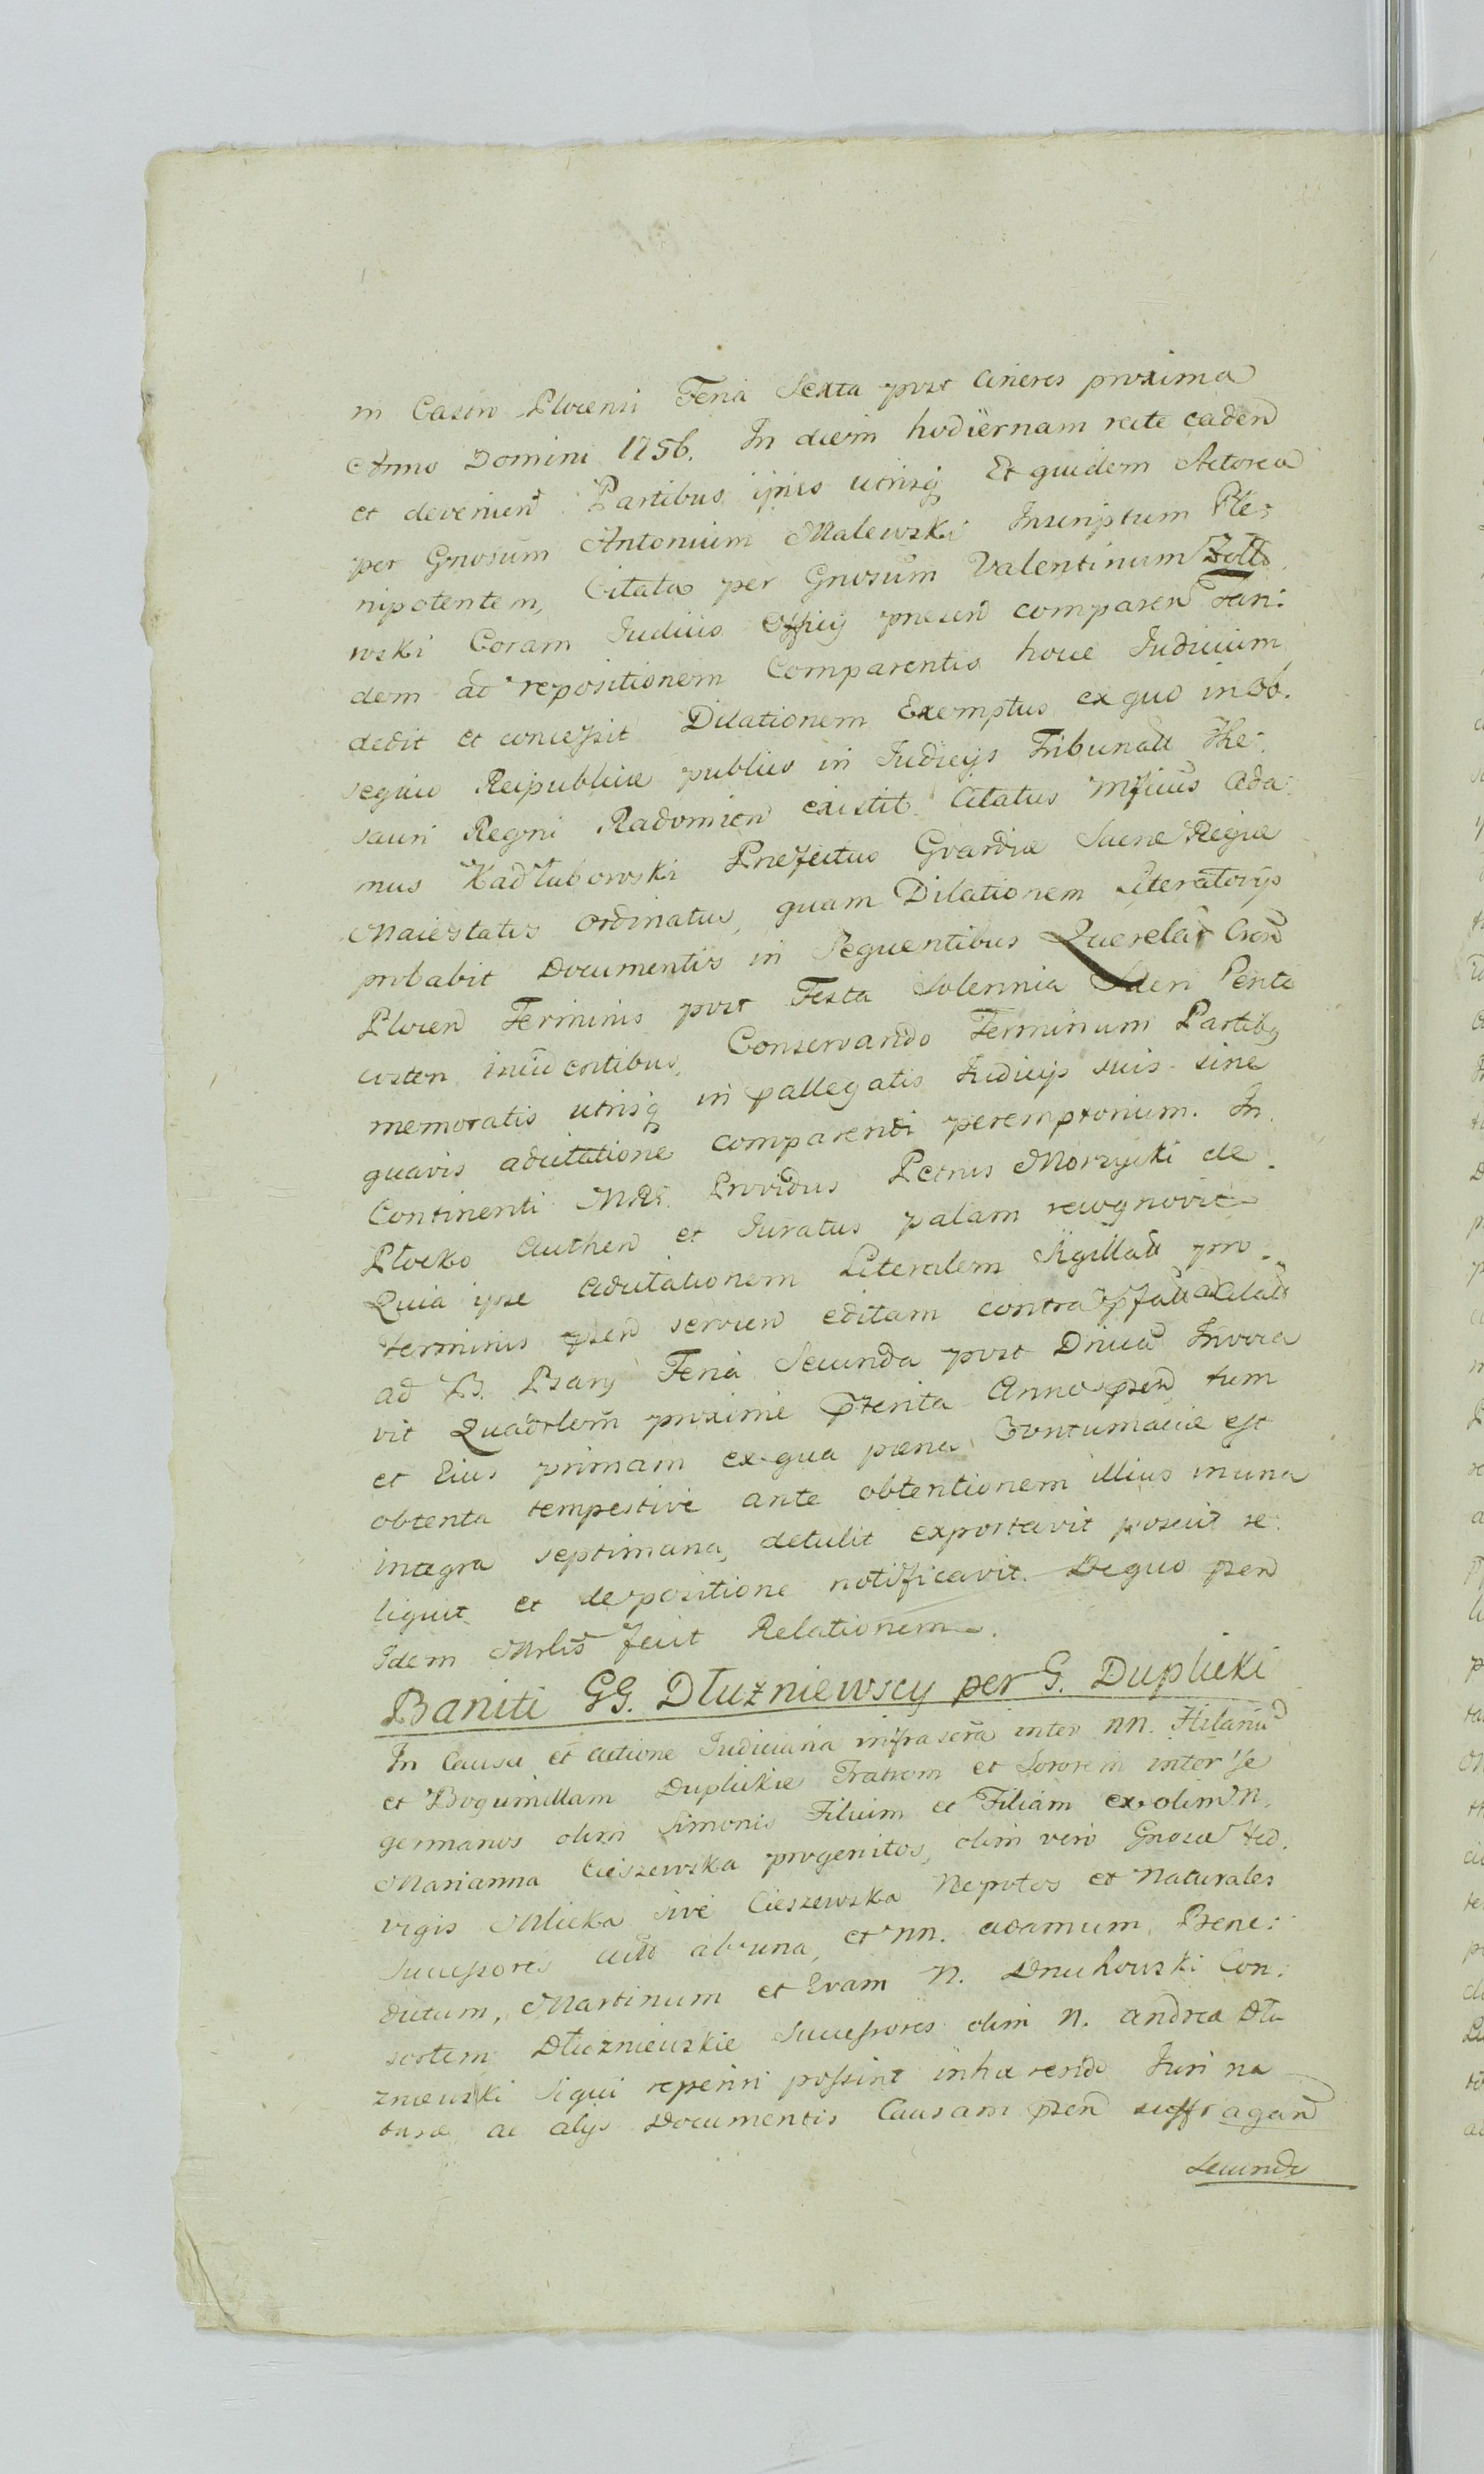 in Castro Plocensi Feria Sexta post Cineres proxima
Anno Domini 1756. In diem hodiernam recte caden
et devenien Partibus ipsis utrisq Et quidem Actorea
per Gnosum Antonium Malewski Inscriptum Ple:
nipotentem, Citata per Gnosum Valentinum Zolto
wski Coram Judicio Officij presen comparen
dem ad repositionem Comparentis hocce Judicium
dedit et concessit Dilationem Exemptus ex quo in ob.
sequio Reipublicæ publico in Judicijs Tribunalu The:
sauri Regni Radomien existit Citatus Mficus Ada
mus Kadłubowski Præfectus Gvardiæ Sacræ Regiæ
Maiestatis Ordinatus, quam Dilationem Literatorijs
probabit Documentis in Sequentibus Querelar Cren
Plocen Terminis post Festa Solennia Sacri Pente
costen incidentibus, Conservando Terminum Partibq
memoratis utrisq in pallegatis Judicijs suis sine
quavis adcitatione comparendi peremptorium. In
Continenti Mrlis Providus Petrus Morzycki de
Plocko Authen et Juratus palam recognovit
Quia ipse Adcitationem Literalem Sigillatu pro
terminis psen servien editam contra
ad B. Psary Feria Secunda post Dnicā Invoca
vit Quadrlem proxime pterita Anno psen tum
et Eius primam ex qua pæna Contumaciæ est
obtenta tempestive ante obtentionem illius in una
integra septimana, detulit exportavit posuit re
liquit et depositione notificavit. De quo psen
Idem Mrlis fecit Relationem.
Baniti GG. Dłużniewscy per G. Duplicki
In Causa et actione Judiciaria infrascra inter NN. Hilariu
et Bogumillam Duplickie Fratrem et Sororem inter se
germanos olim Simonis Filium et Filiam ex olim N.
Marianna Cieszewska progenitos, olim vero Gnosæ Hed
vigis Mlicka sive Cieszewska Nepotes et Naturales
Successores ab una, et NN. Adamum, Bene:
dictum, Martinum et Evam N. Con:
sortem Dłużniewskie Successores olim N. Andreæ Dłu
zniewski Siqui reperiri possint inhærendo Juri na
turæ ac alijs Documentis Causam psen suffragan
Secundo